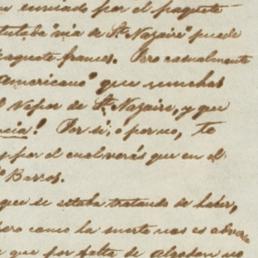 un enviado por el paquete
titulaba "via de St. Nazaire" puede
paquete frances. Pero casualmente
Americano" que muchas
el vapor de St. Nazaire, y que
! Por si, ó por no, te
y por el cual verás que en el
Barcos.
que se estaba tratando de hacer,
pero como la suerte nos es
que por falta de algodon no